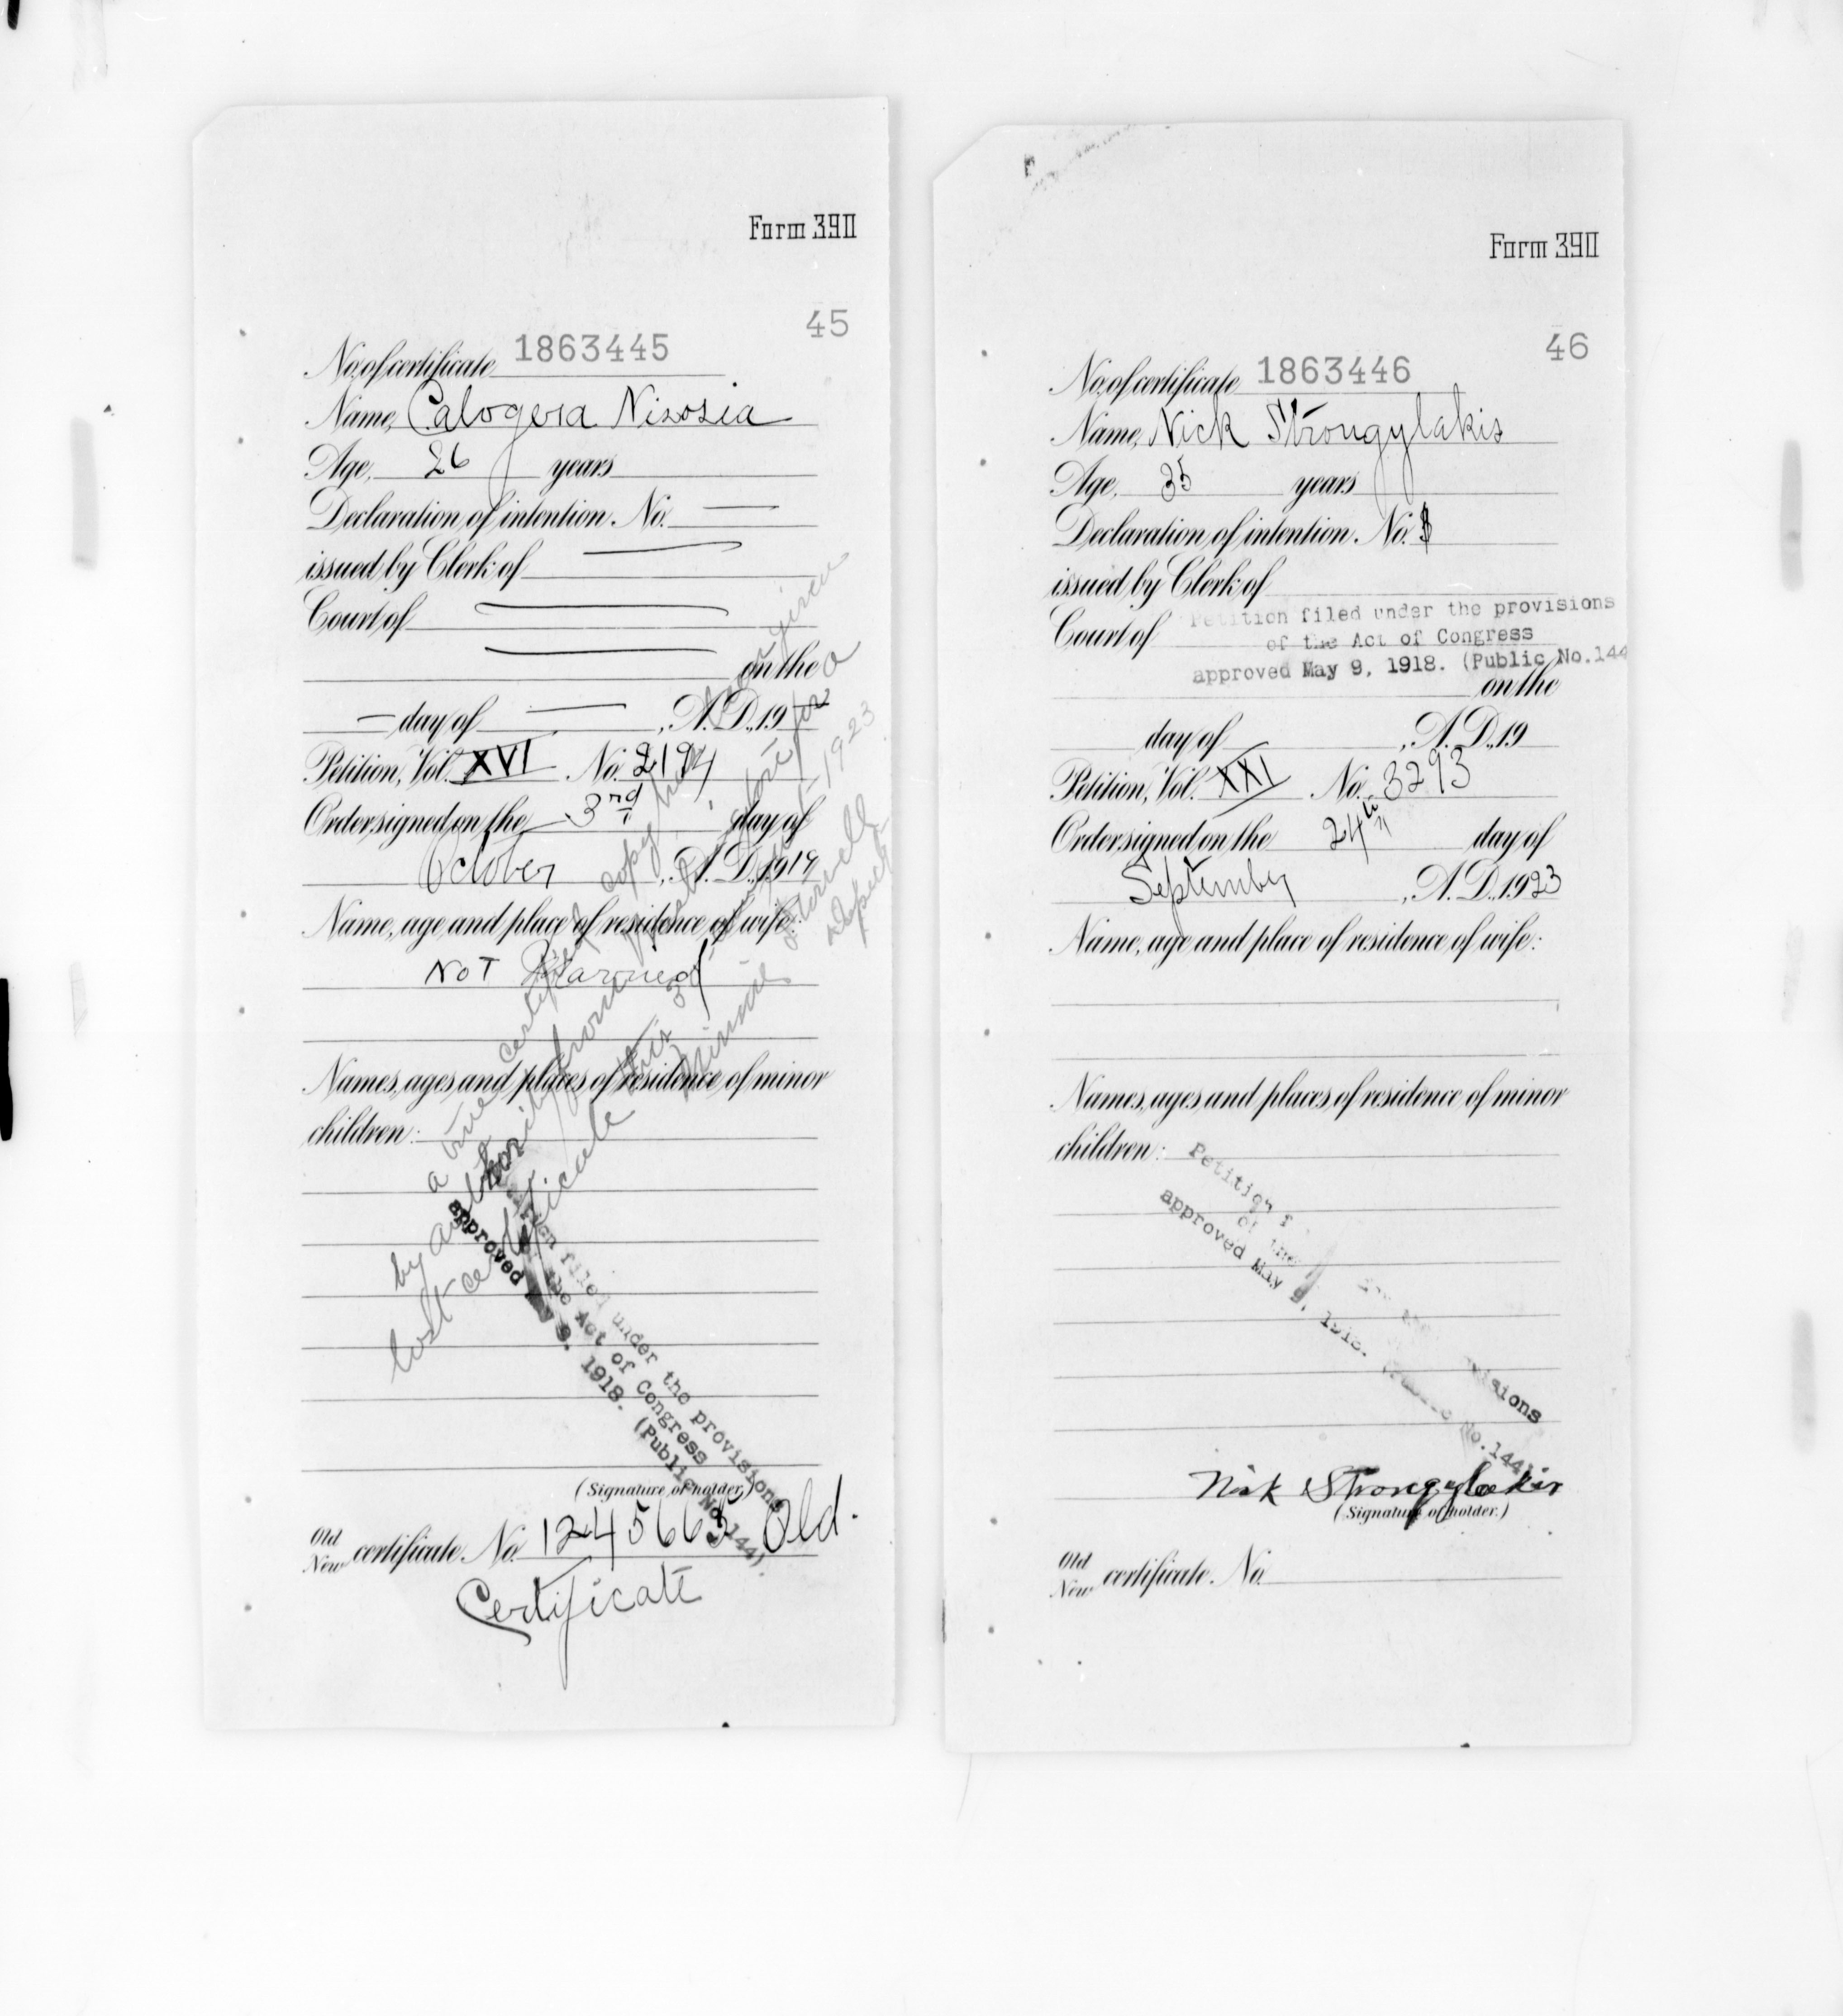 Form 390
45
No. of certificate 1863445
Name, Calogera Nisosia
Age, 26 years
Declaration of intention. No. —
issued by Clerk of —
Court of —
— on the
— day of — , A. D., 19
Petition, Vol. XVI No. 2194
Order signed on the 3rd day of
October , A. D., 1919
Name, age and place of residence of wife:
NOT Married
Names, ages and places of residence of minor
children:
a true certified copy has
by authority from
lost certificate this 3 1923
Minnie Stowell
Deputy
Petition filed under the provisions
of the Act of Congress
approved May 9, 1918. (Public No. 144).
(Signature of holder.)
Old
New certificate. No. 1245663 Old.
Certificate
Form 390
46
No. of certificate 1863446
Name, Nick Strongylakis
Age, 35 years
Declaration of intention. No.
issued by Clerk of
Court of
Petition filed under the provisions
of the Act of Congress
approved May 9, 1918. (Public No. 144
on the
day of , A. D., 19
Petition, Vol. XXI No. 3293
Order signed on the 24th day of
September , A. D., 1923
Name, age and place of residence of wife:
Names, ages and places of residence of minor
children:
Petition f visions
of the
approved May 9, 1918. (Public No. 144)
Nick Strongylakis
(Signature of holder.)
Old
New certificate. No.